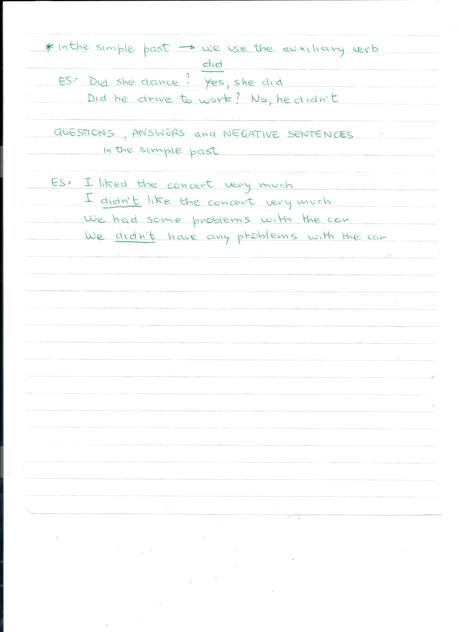 * in the simple past → we use the auxiliary verb
did
ES: Did she dance? Yes, she did
Did he drive to work? No, he didn't
QUESTIONS, ANSWERS and NEGATIVE SENTENCES
in the simple past
ES: I liked the concert very much
I didn't like the concert very much
We had some problems with the car
We didn't have any problems with the car